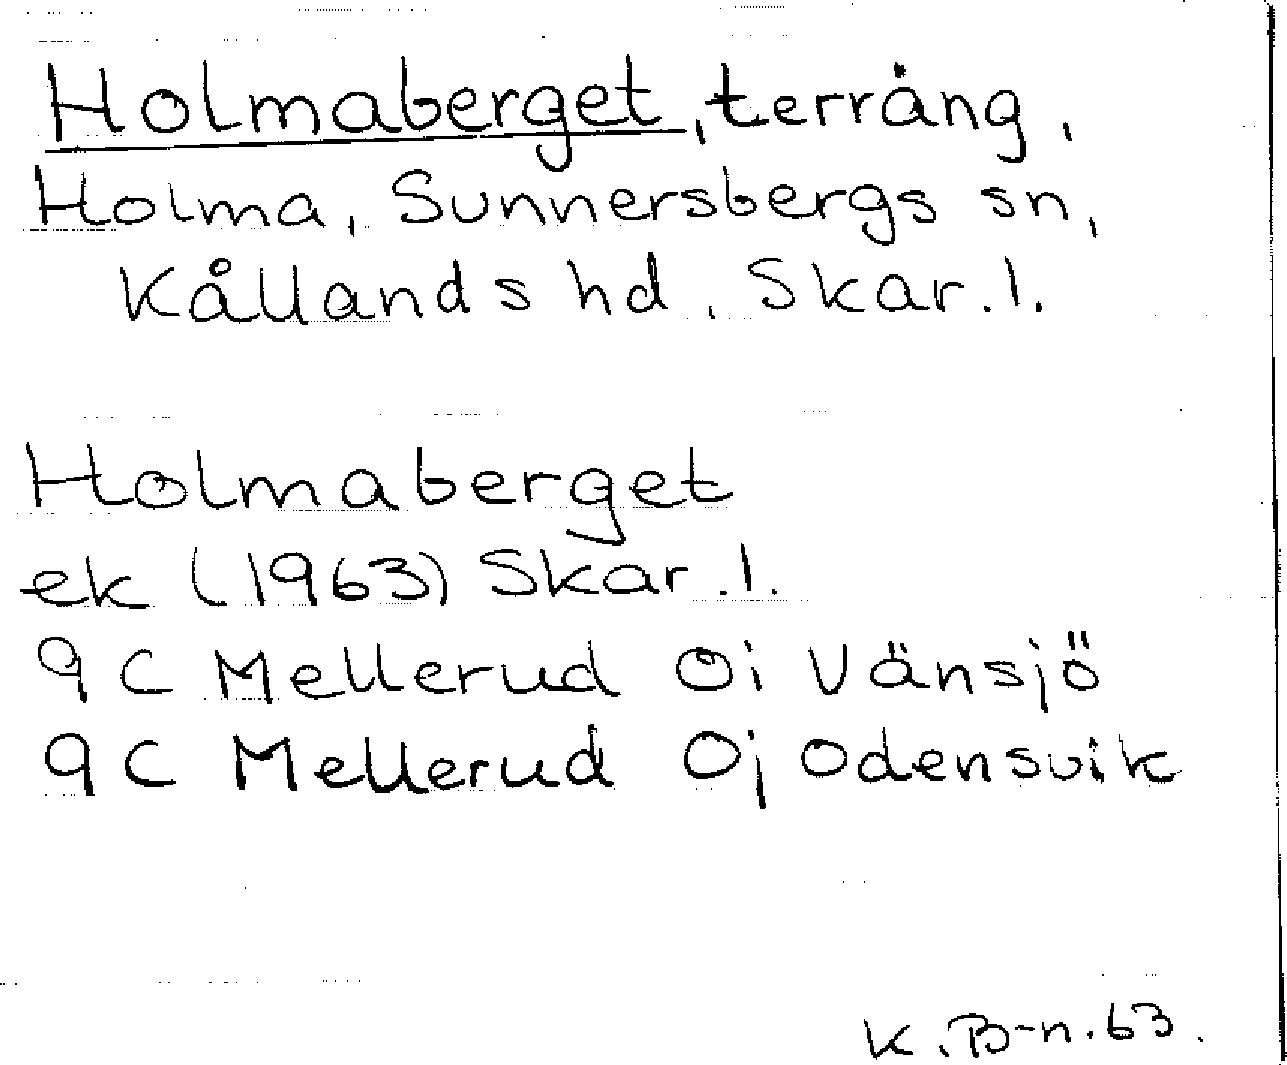 Holmaberget, terräng,
Holma, Sunnersbergs sn,
Kållands hd, Skar.l.
Holmaberget
ek (1963) Skar.l.
9C Mellerud 0i Vänsjö
9C Mellerud 0j Odensvik
K.B-n.63.